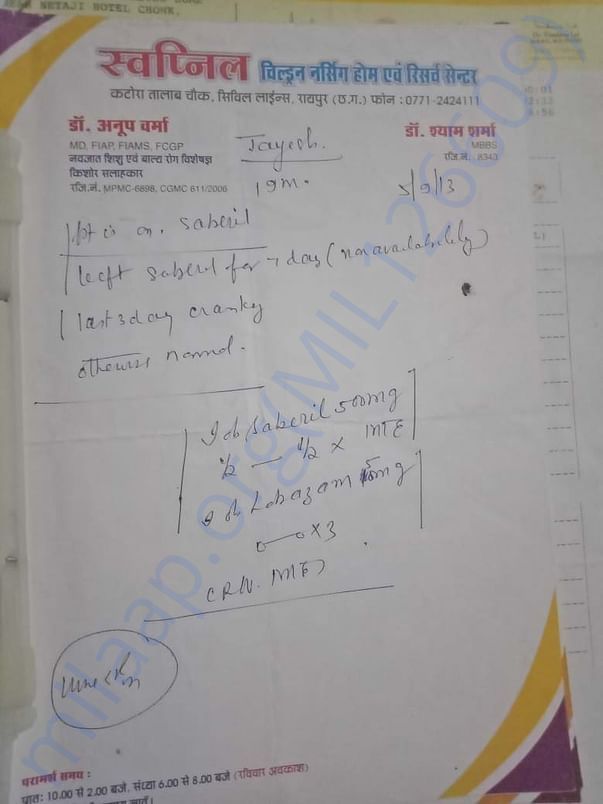 NETAJI HOTEL CHONK.
स्वप्निल चिल्ड्रन नर्सिंग होम एवं रिसर्च सेन्टर
कटोरा तालाब चौक, सिविल लाईन्स, रायपुर (छ.ग.) फोन : 0771-2424111
डॉ. अनूप वर्मा
MD, FIAP, FIAMS, FCGP
नवजात शिशु एवं बाल्य रोग विशेषज्ञ
किशोर सलाहकार
रजि.नं. MPMC-6898, CGMC 611/2006
डॉ. श्याम शर्मा
MBBS
रजि.नं. : 8343
Jayesh.
19m.
5/9/13
Pt is on. Saberil
left Saberil for 7 day (non availability)
last 3 day cranky
otherwise normal.
Tab Saberil 500mg
1/2 — 1/2 x
Tab Lobazam 5mg
x3
milaap.org(MIL126609)
परामर्श समय :
प्रातः 10.00 से 2.00 बजे, संध्या 6.00 से 8.00 बजे (रविवार अवकाश)